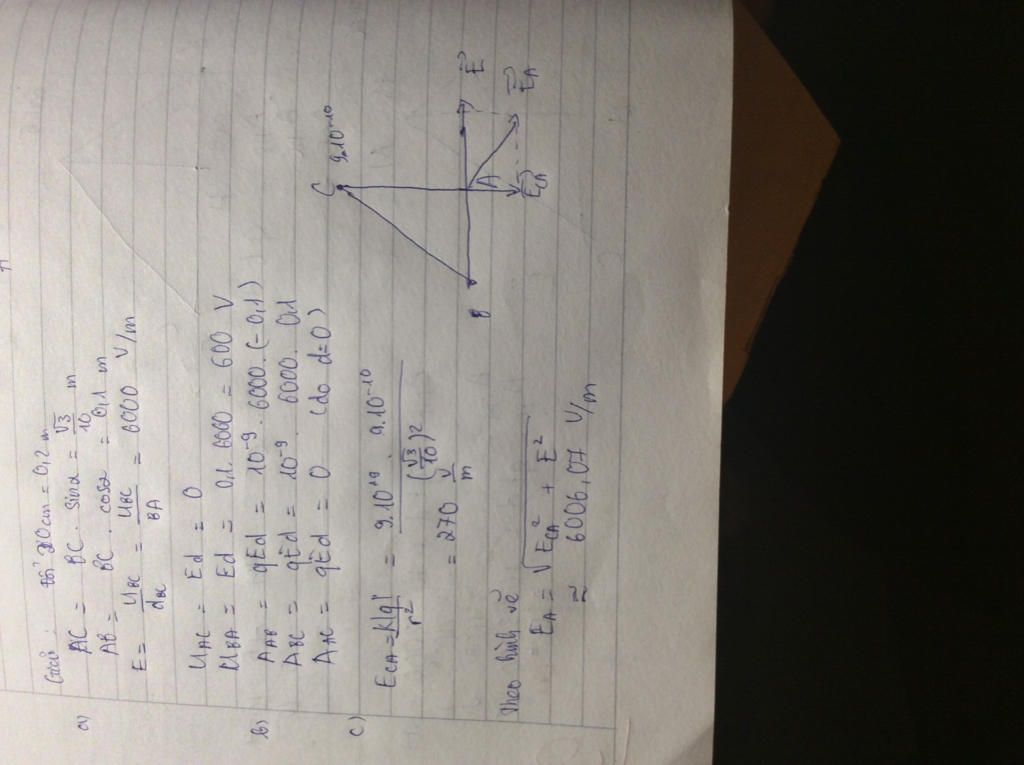 Giải: Đổi 20cm = 0,2 m
a) AC = BC . sinα = √3/10 m
AB = BC . cosα = 0,1 m
E = U_BC/d_BC = U_BC/BA = 6000 V/m
U_AC = Ed = 0
U_BA = Ed = 0,1. 6000 = 600 V
b) A_AB = qEd = 10⁻⁹ . 6000. (-0,1)
A_BC = qEd = 10⁻⁹ . 6000. 0,1
A_AC = qEd = 0 (do d=0)
c) E_CA = k|q|/r² = 9.10⁺⁹ . 9.10⁻¹⁰/(√3/10)²
= 270 V/m
Theo hình vẽ
E_A = √(E_CA² + E²)
≈ 6006,07 V/m
C 9.10⁻¹⁰
B A E⃗
E⃗_CA E⃗_A